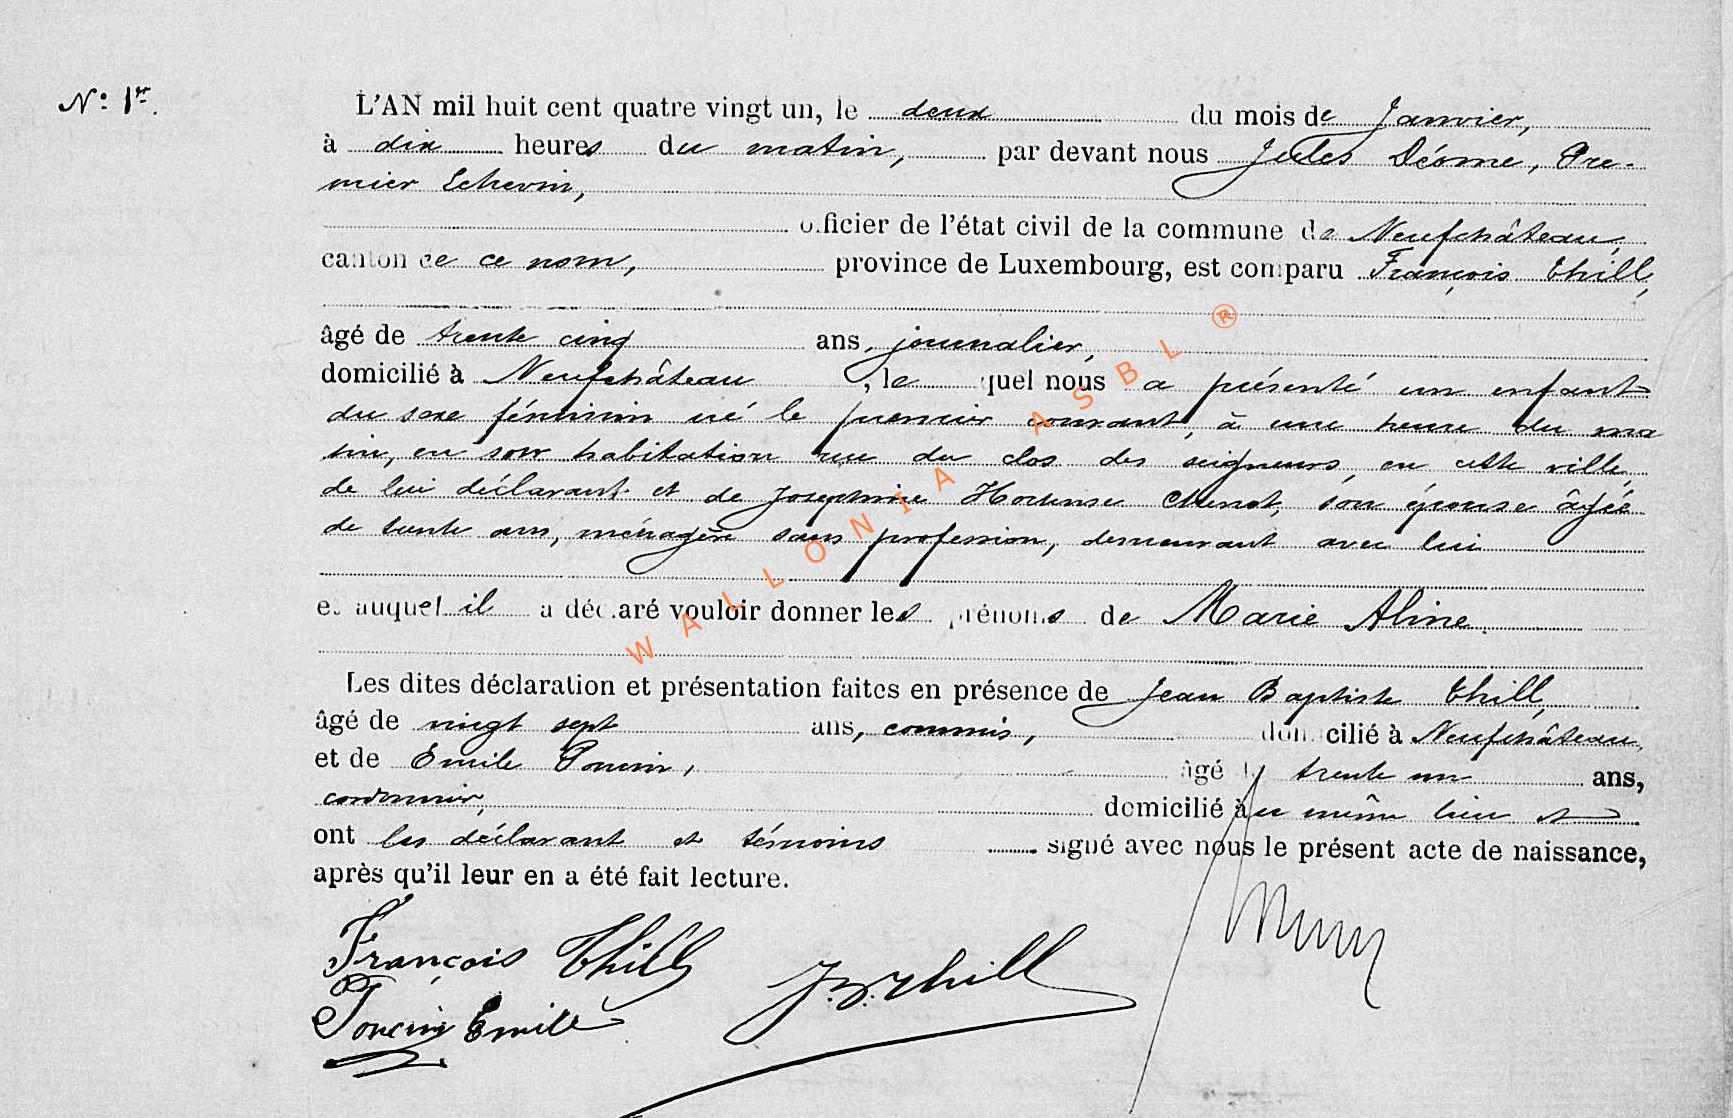 N° 1er.
L'AN mil huit cent quatre vingt un, le deux du mois de Janvier,
à dix heures du matin, par devant nous Jules Déome, Pre-
mier Echevin,
officier de l'état civil de la commune de Neufchâteau,
canton de ce nom, province de Luxembourg, est comparu François Thill,
âgé de trente cinq ans, journalier,
domicilié à Neufchâteau, le quel nous a présenté un enfant
du sexe féminin né le premier courant, à une heure du ma
tin, en son habitation rue du clos des seigneurs, en cette ville,
de lui déclarant et de Josephine Hortense Chenot, son épouse âgée
de trente ans, ménagère sans profession, demeurant avec lui
et auquel il a déclaré vouloir donner les prénoms de Marie Aline.
Les dites déclaration et présentation faites en présence de Jean Baptiste Thill,
âgé de vingt sept ans, commis, domicilié à Neufchâteau,
et de Emile Poncin, âgé de trente un ans,
cordonnier, domicilié au même lieu et
ont les déclarant et témoins signé avec nous le présent acte de naissance,
après qu'il leur en a été fait lecture.
François Thill
J.B. Thill
Poncin Emile
WALLONIA ASBL ®